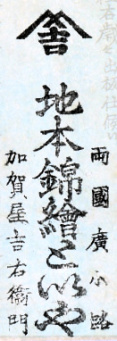 兩國廣小路
吉
地本錦繪といや
加賀屋吉右衛門